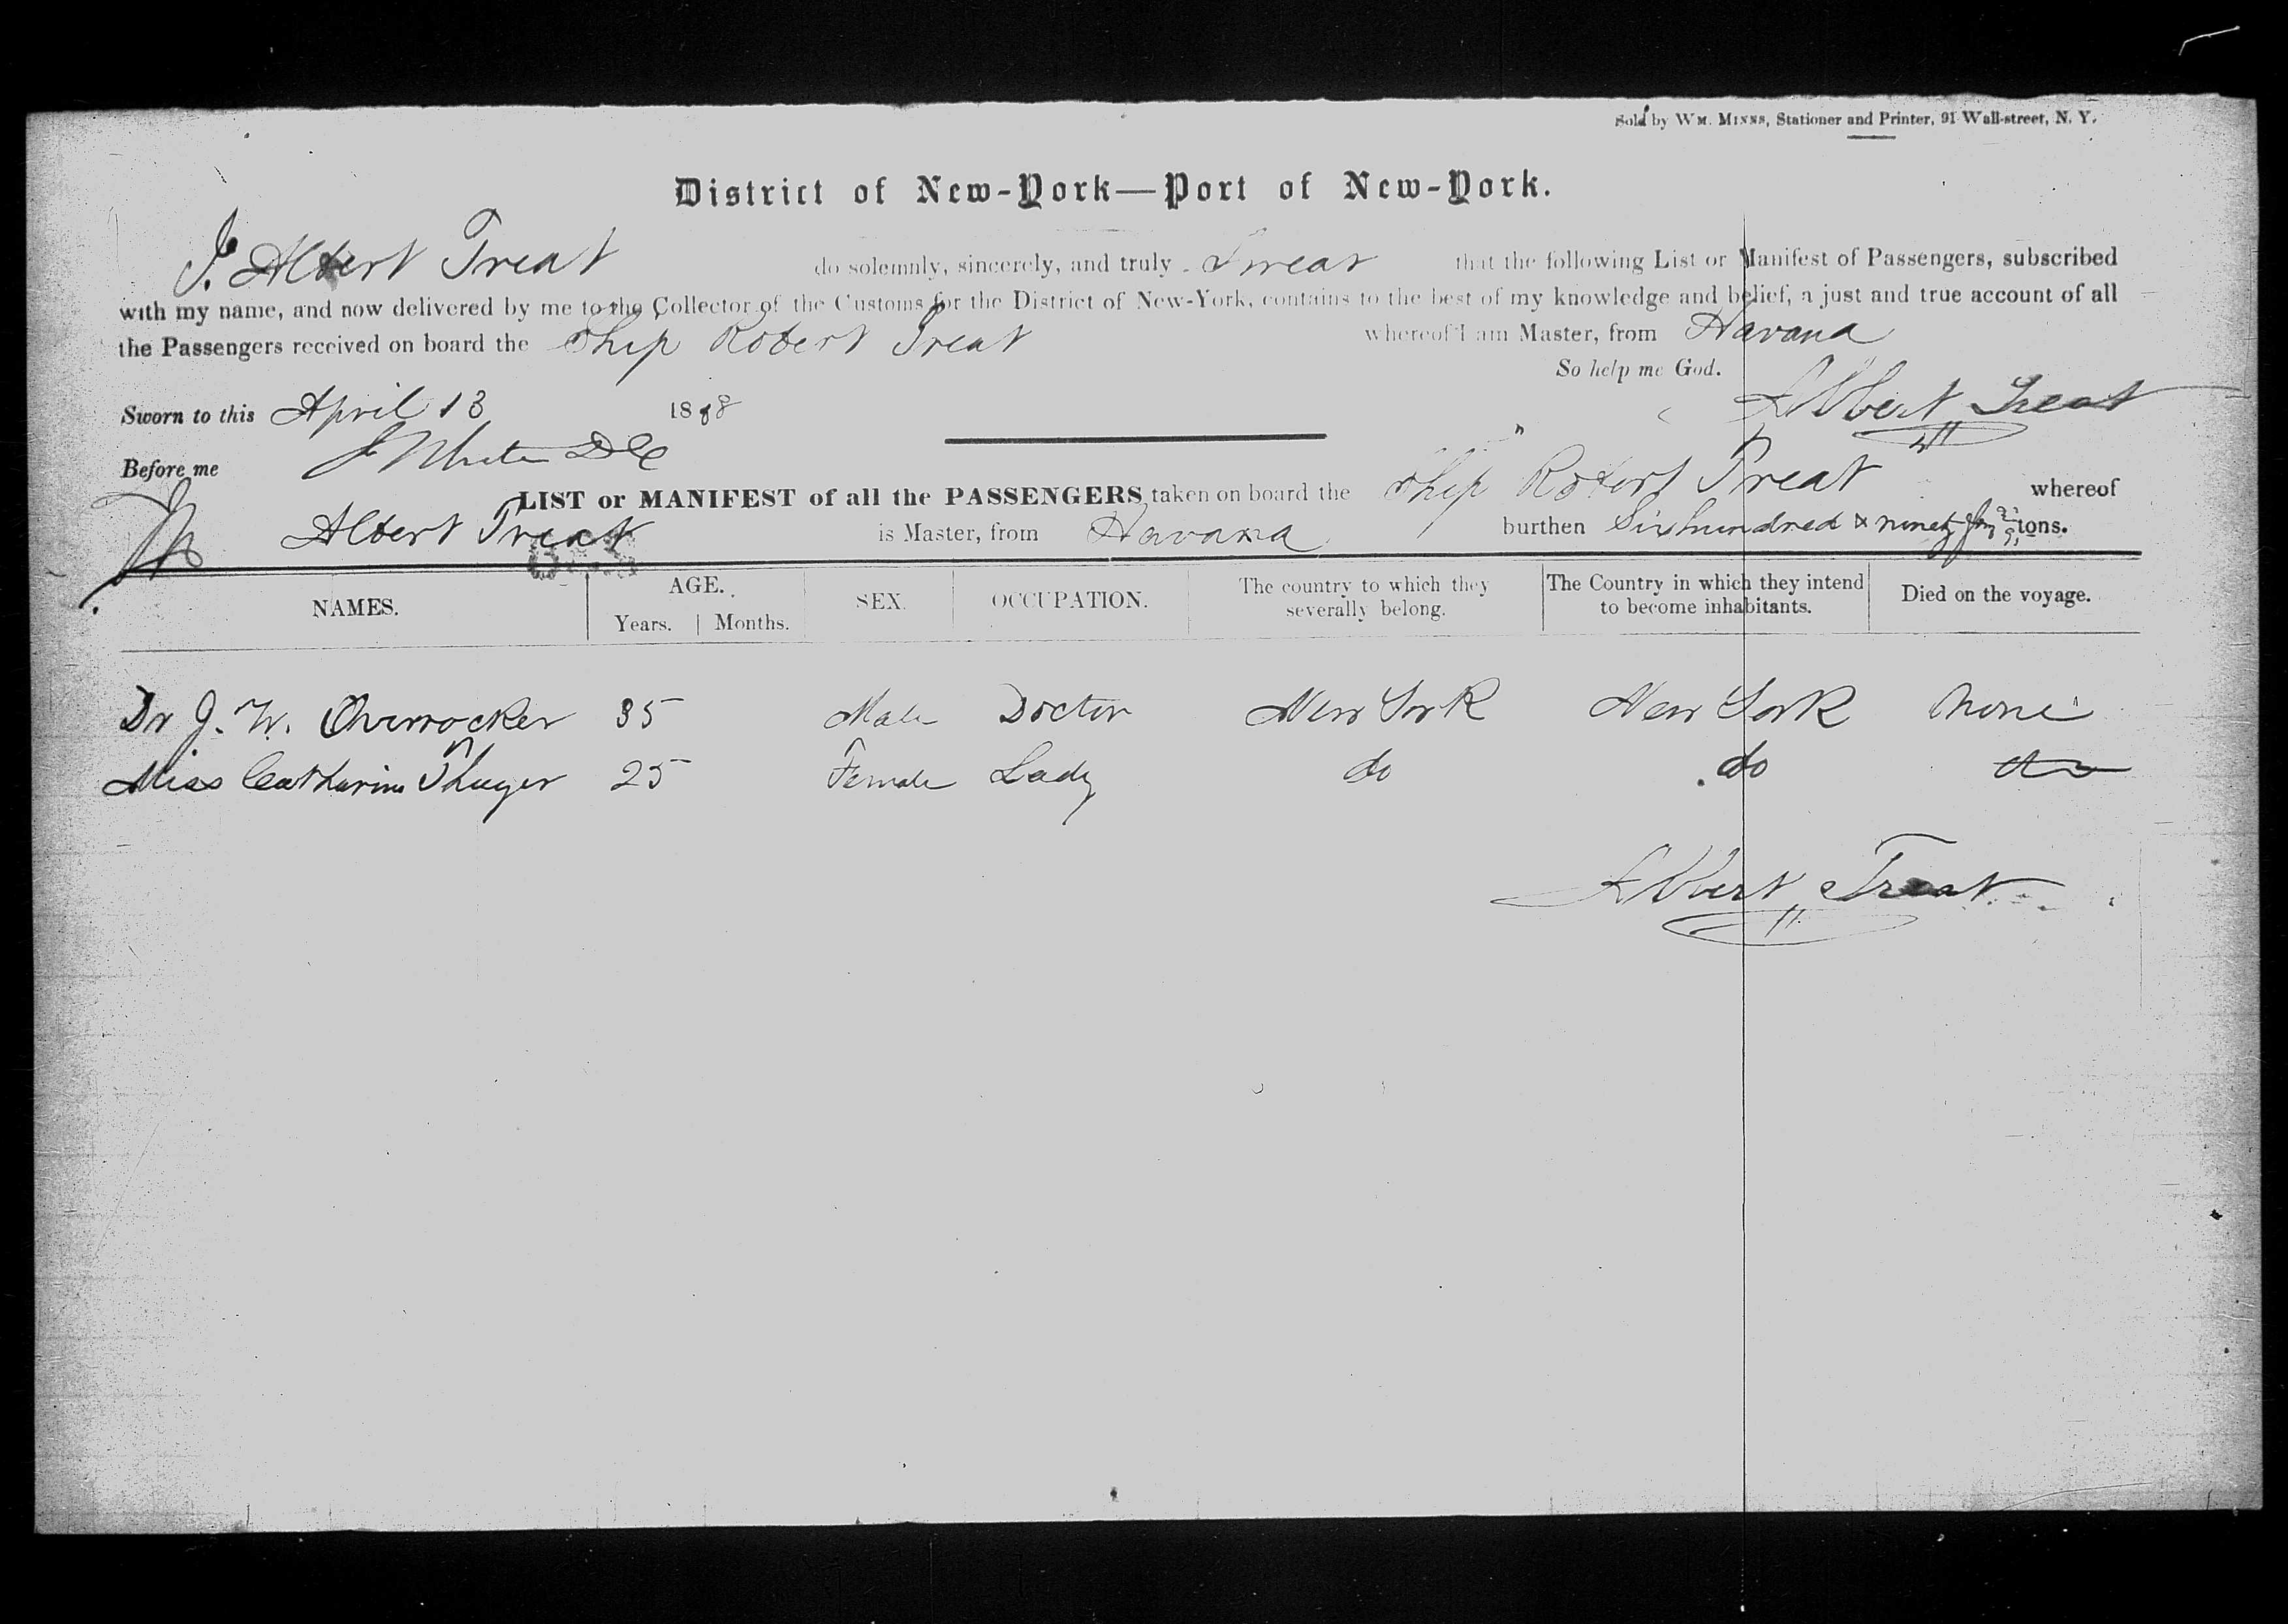 Sold by WM. MINNS, Stationer and Printer, 91 Wall-street, N. Y.
District of New-York—Port of New-York.
I. Albert Treat do solemnly, sincerely, and truly Swear that the following List or Manifest of Passengers, subscribed
with my name, and now delivered by me to the Collector of the Customs for the District of New-York, contains to the best of my knowledge and belief, a just and true account of all
the Passengers received on board the Ship Robert Treat whereof I am Master, from Havana
So help me God.
Sworn to this April 13 18 Albert Treat
Before me
LIST or MANIFEST of all the PASSENGERS taken on board the Ship Robert Treat whereof
Albert Treat is Master, from Havana burthen Six hundred & ninety tons.
NAMES. AGE. Years. Months. SEX. OCCUPATION. The country to which they severally belong. The Country in which they intend to become inhabitants. Died on the voyage.
Dr J. W. 35 Male Doctor New York New York None
Miss Catharine 25 Female Lady do do
Albert Treat